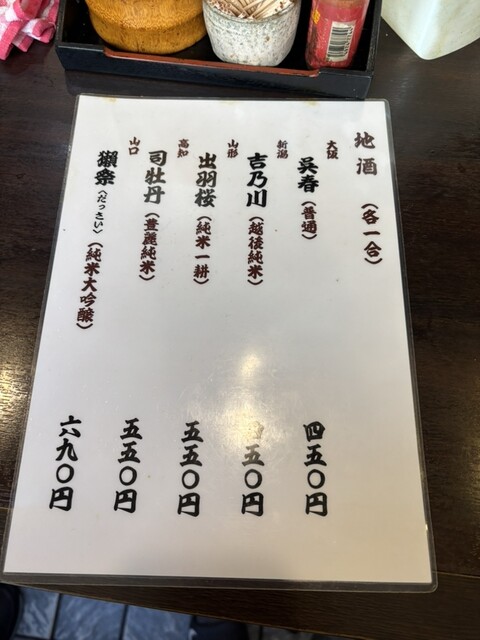 地酒 （各一合）
大阪
呉春（普通） 四五〇円
新潟
吉乃川（越後純米） 四五〇円
山形
出羽桜（純米一耕） 五五〇円
高知
司牡丹（豊麗純米） 五五〇円
山口
獺祭（だっさい）（純米大吟醸） 六九〇円